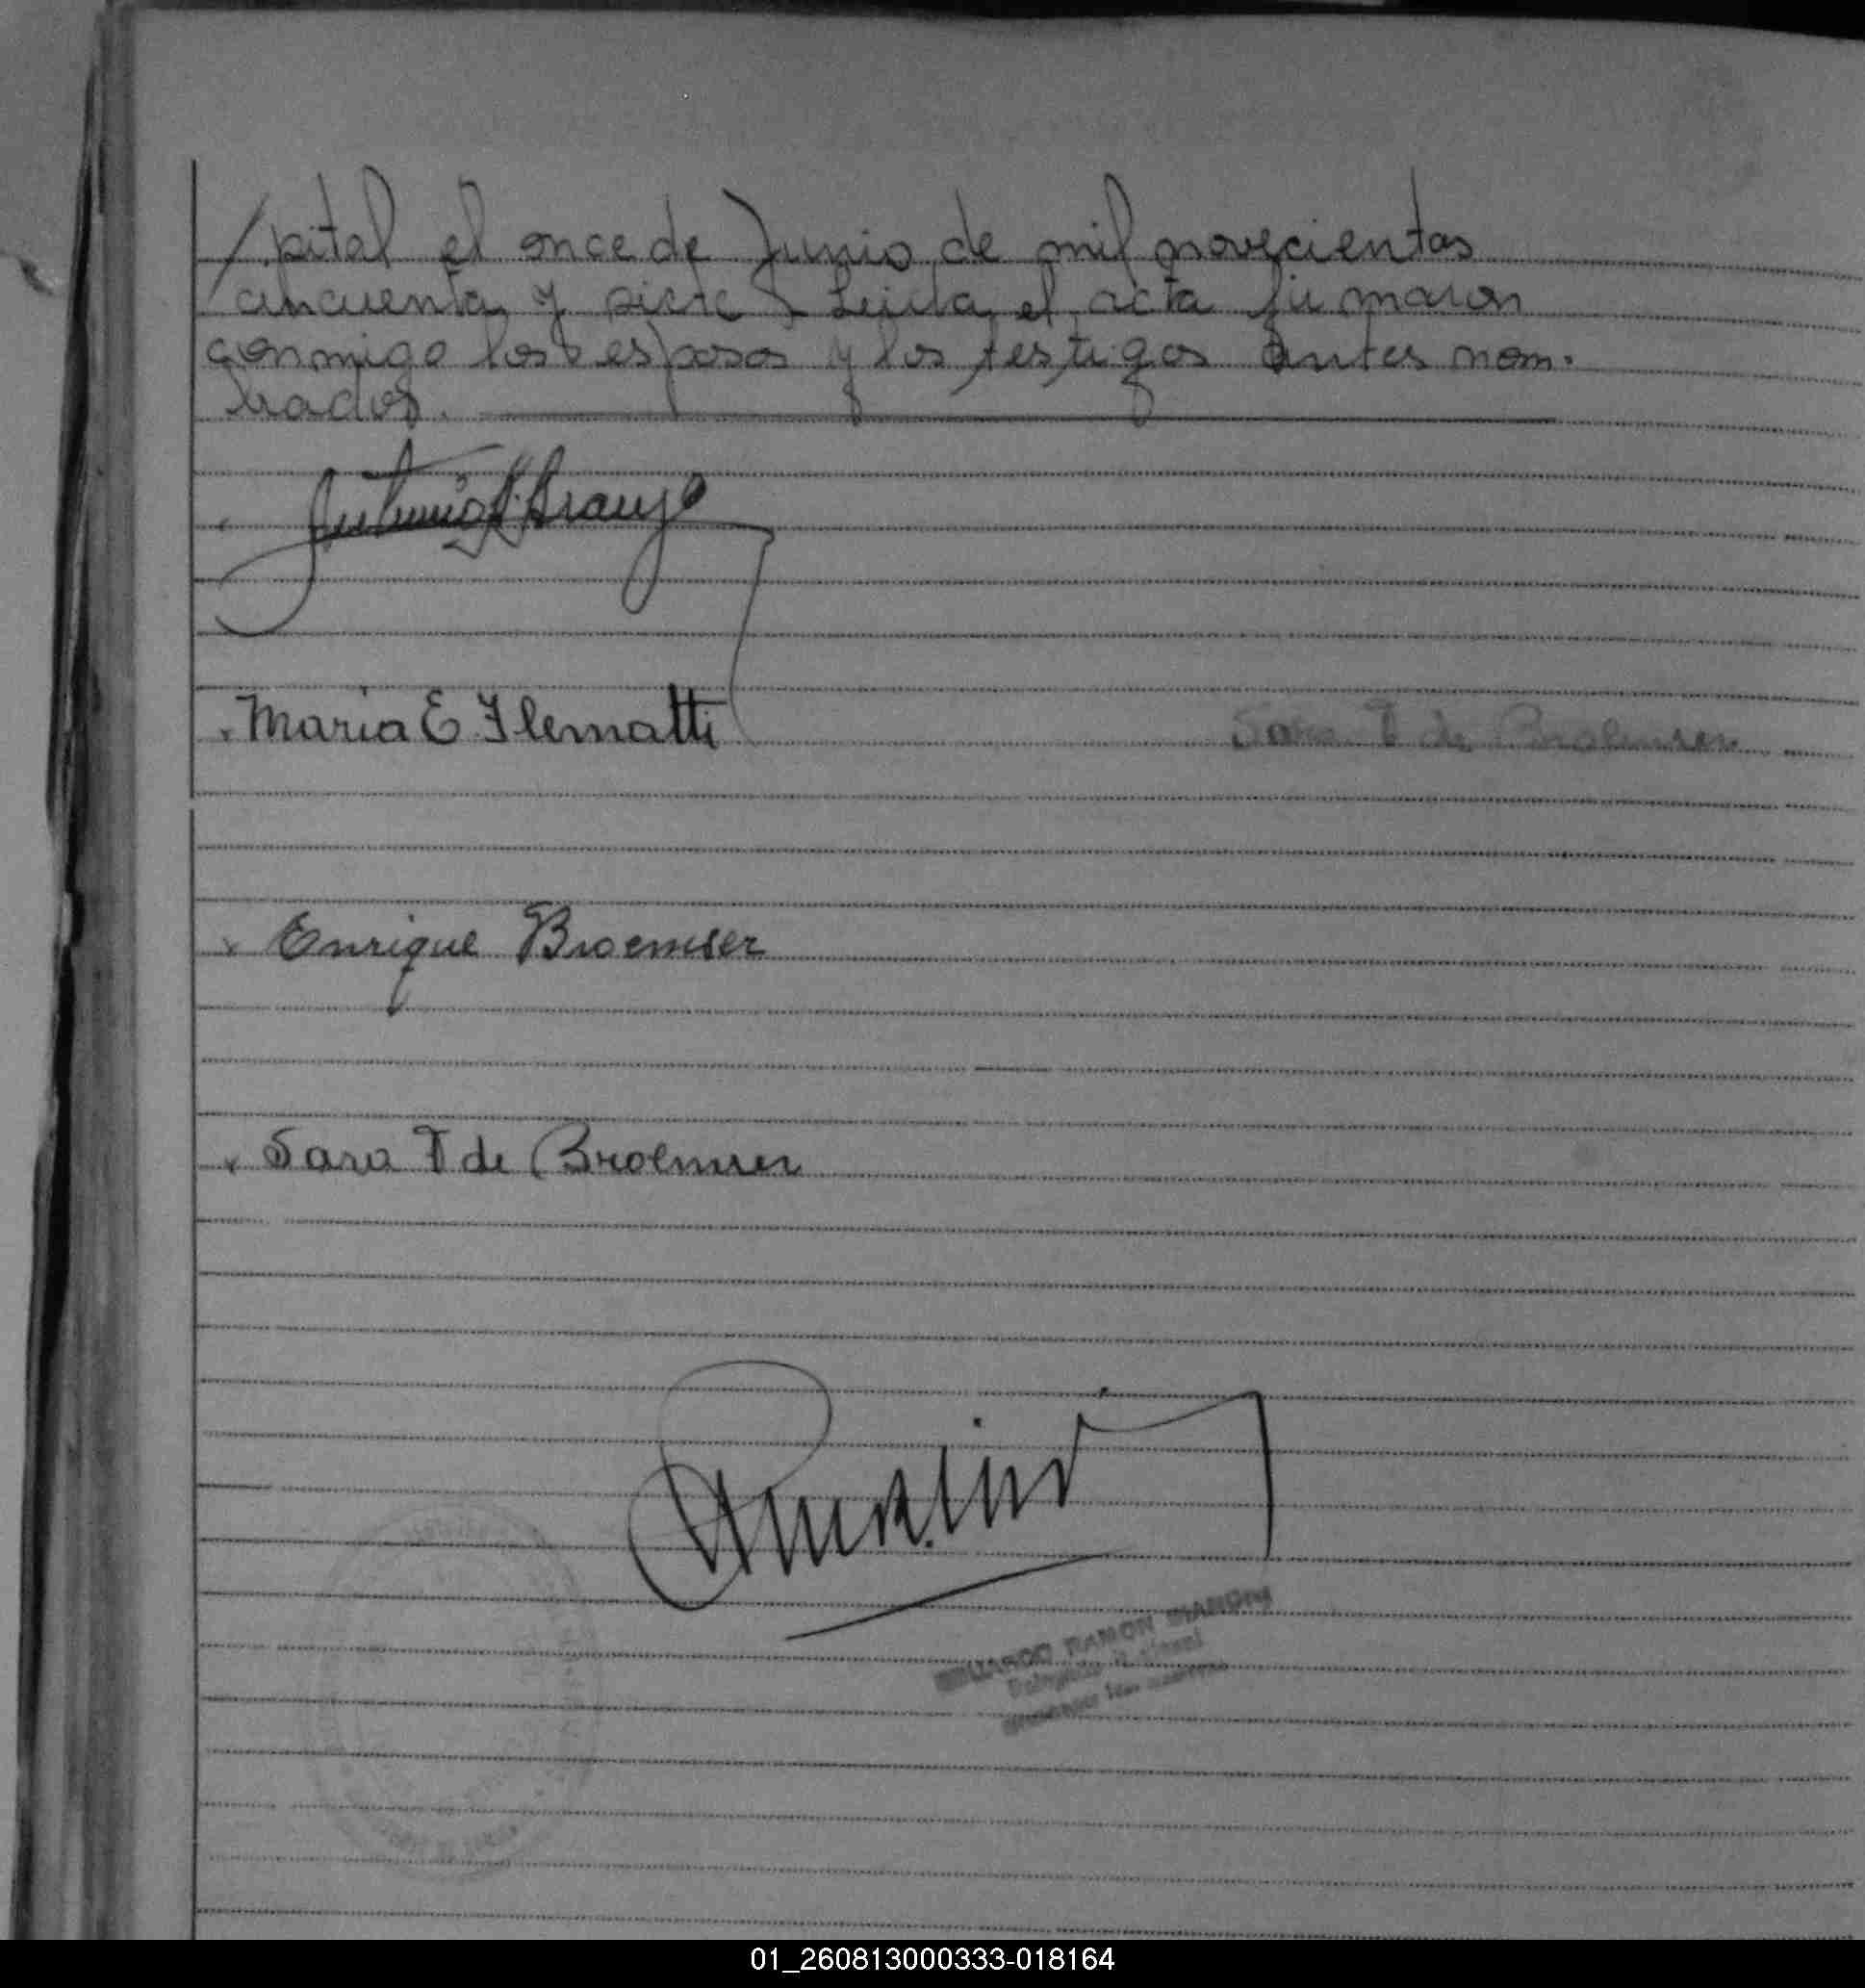 /pital el once de Junio de mil novecientos
cincuenta y siete - Leida el acta firmaron
conmigo los esposos y los testigos antes nom-
brados.
Antonio Araujo
Maria E. Flematti
Sara F de Broemser
Enrique Broemser
Sara F de Broemser
RAMON
01_260813000333-018164